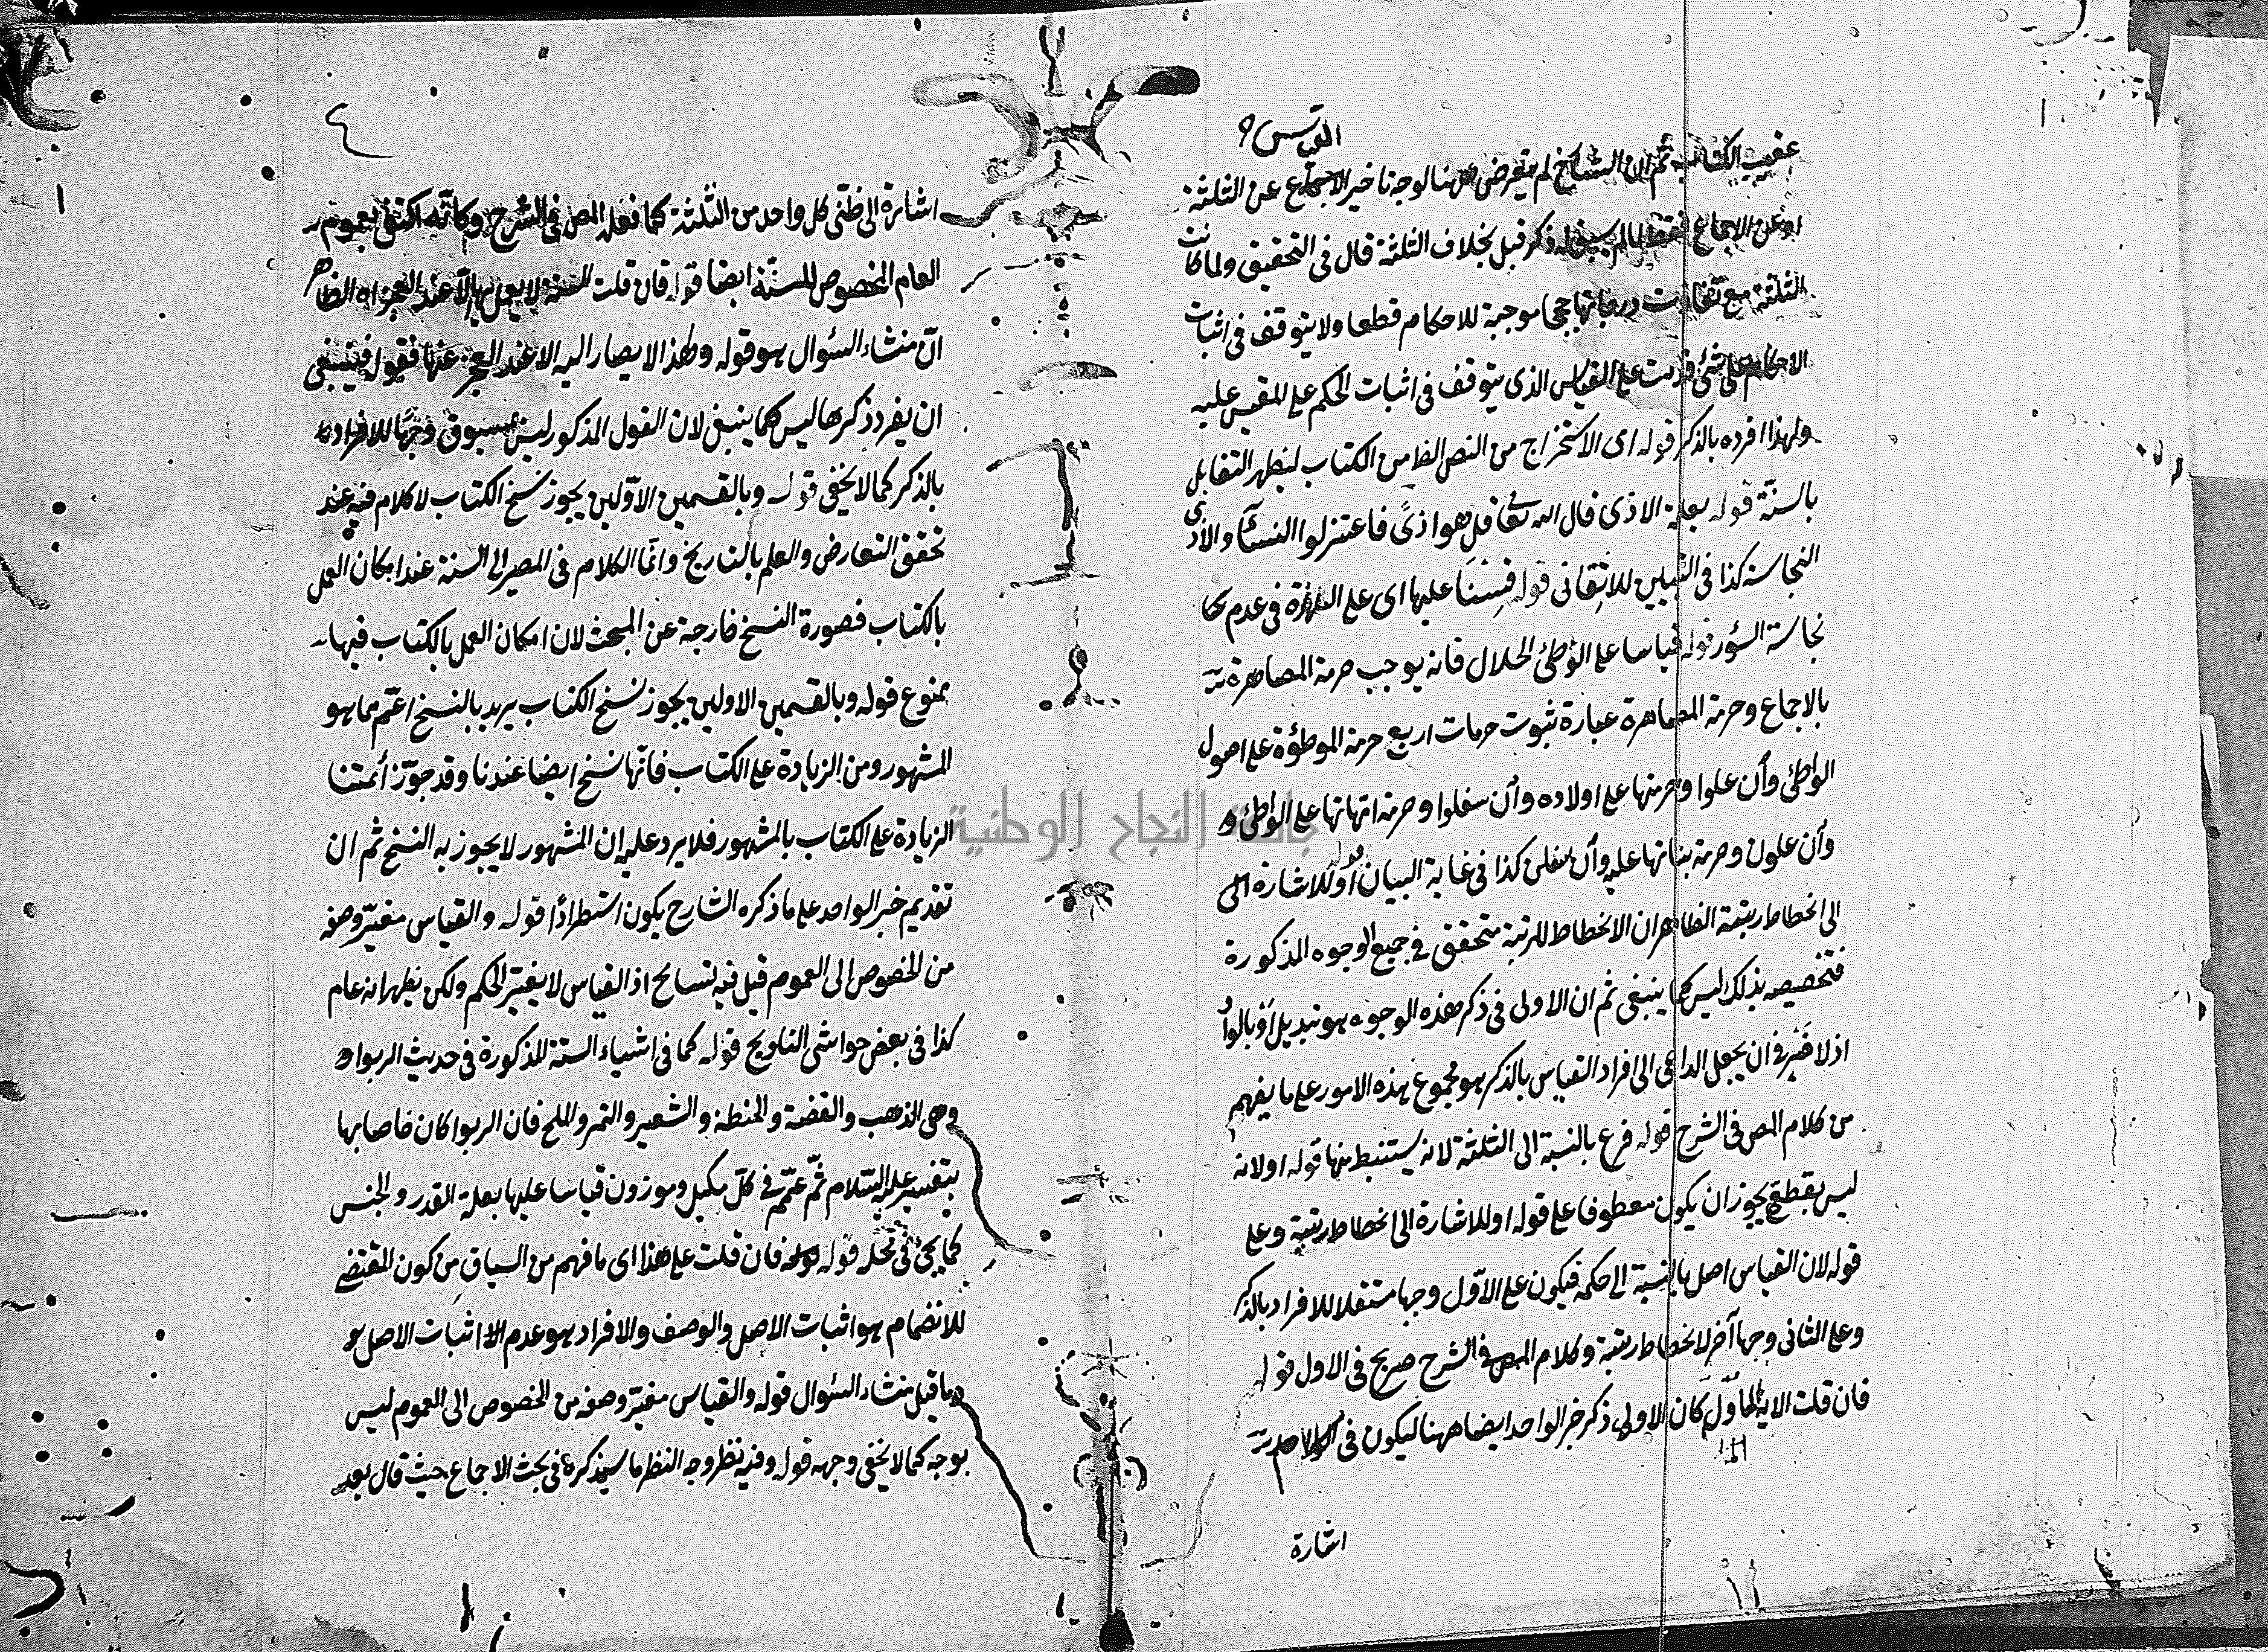 القياس
عقيب الكتاب ثم ان الشارح لم يتعرض ههنا لوجه تاخير الاجماع عن الثلثة
او عن الاجماع فقط لما لم يسبق له ذكر قبل بخلاف الثلثة قال في التحقيق ولما كانت
الثلثة مع تفاوت درجاتها حججا موجبة للاحكام قطعا ولا يتوقف في اثبات
الاحكام على شئ قدمت على القياس الذى يتوقف في اثبات الحكم على المقيس عليه
ولهذا افرده بالذكر قوله اى الاستخراج من النص الظ من الكتاب ليظهر التقابل
بالسنّة قوله بعلة الاذى قال الله تعا قل هوا ذىً فاعتزلوا النسآء والاذى
النجاسة كذا في التبيين للاتقانى قوله قسنا عليها اى على الهرة في عدم
نجاسة السؤر قوله قياسا على الوطئ الحلال فانه يوجب حرمة المصاهرة
بالاجماع وحرمة المصاهرة عبارة ثبوت حرمات اربع حرمة الموطؤة على اصول
الواطئ وأن علوا وحرمتها على اولاده وأن سفلوا وحرمة امّهاتها على الواطئ و
وأن علون وحرمة بناتها عليه وأن سفلن كذا في غاية البيان قوله أو للاشارة الى
الى انحطاط رتبته الظاهر ان الانحطاط للمرتبة متحقق في جميع الوجوه المذكورة
فتخصيصه بذلك ليس كما ينبغى ثم ان الاولى في ذكر هذه الوجوه هو تبديل أو بالواو
اذ لا ضير في ان يجعل الداعى الى افراد القياس بالذكر هو مجموع هذه الامور على ما يفهم
من كلام المص في الشرح قوله فرع بالنسبة الى الثلثة لانه يستنبط منها قوله اولانه
ليس بقطعى يجوز ان يكون معطوفا على قوله او للاشارة الى انحطاط رتبته وعلى
قوله لان القياس اصل بالنسبة الى حكمه فيكون على الاوّل وجها مستقلا للافراد بالذكر
وعلى الثانى وجها آخر لانحطاط رتبته وكلام المص في الشرح صريح في الاول قوله
فان قلت الاية المأوّل كان الاولى ذكر خبر الواحد ايضا ههنا ليكون في الكلام
اشارة
اشارة الى ظنّى كل واحد من الثلثة كما فعله المص في الشرح وكانّه اكتفى بعموم
العام المخصوص للسنّة ايضا قوله فان قلت السنة لا يعمل بها الّا عند العجز اه الظاهر
انّ منشاء السئوال هو قوله ولهذا لا يصار اليه الا عند العجز عنها فقوله فينبغى
ان يفرد ذكرها ليس كما ينبغى لان القول المذكور ليس بمسوق وجهًا للافراد
بالذكر كما لا يخفى قوله وبالقسمين الاوّلين يجوز نسخ الكتاب لا كلام فيه عند
تحقق التعارض والعلم بالتاريخ وانّما الكلام في المصير الى السنة عند امكان العمل
بالكتاب فصورة النسخ خارجة عن المبحث لان امكان العمل بالكتاب فيها
ممنوع قوله وبالقسمين الاولين يجوز نسخ الكتاب يريد بالنسخ اعمّ مما هو
المشهور ومن الزيادة على الكتاب فانّها نسخ ايضا عندنا وقد جوّز أئمتنا
الزيادة على الكتاب بالمشهور فلا يرد عليه ان المشهور لا يجوز به النسخ ثم ان
تقديم خبر الواحد على ما ذكره الشارح يكون استطرادًا قوله والقياس مغيّر وصفه
من الخصوص الى العموم قيل فيه تسامح اذ القياس لا يغيّر الحكم ولكن يظهر انه عام
كذا في بعض حواشى التلويح قوله كما في اشياء الستة المذكورة في حديث الربوا
وهى الذهب والفضة والحنطة والشعير والتمر والملح فان الربوا كان خاصا بها
بتفسير عليه السّلام ثمّ عمّم في كلّ مكيل وموزون قياسا عليها بعلة القدر والجنس
كما يجئ في محله قوله فان قلت على هذا اى ما فهم من السياق من كون المقتضى
للانضمام هو اثبات الاصل والوصف والافراد هو عدم اثبات الاصل
وما قيل منشاء السئوال قوله والقياس مغيّر وصفه من الخصوص الى العموم ليس
بوجه كما لا يخفى وجهه قوله وفيه نظر وجه النظر ما سيذكره في بحث الاجماع حيث قال بعد
جامعة النجاح الوطنية